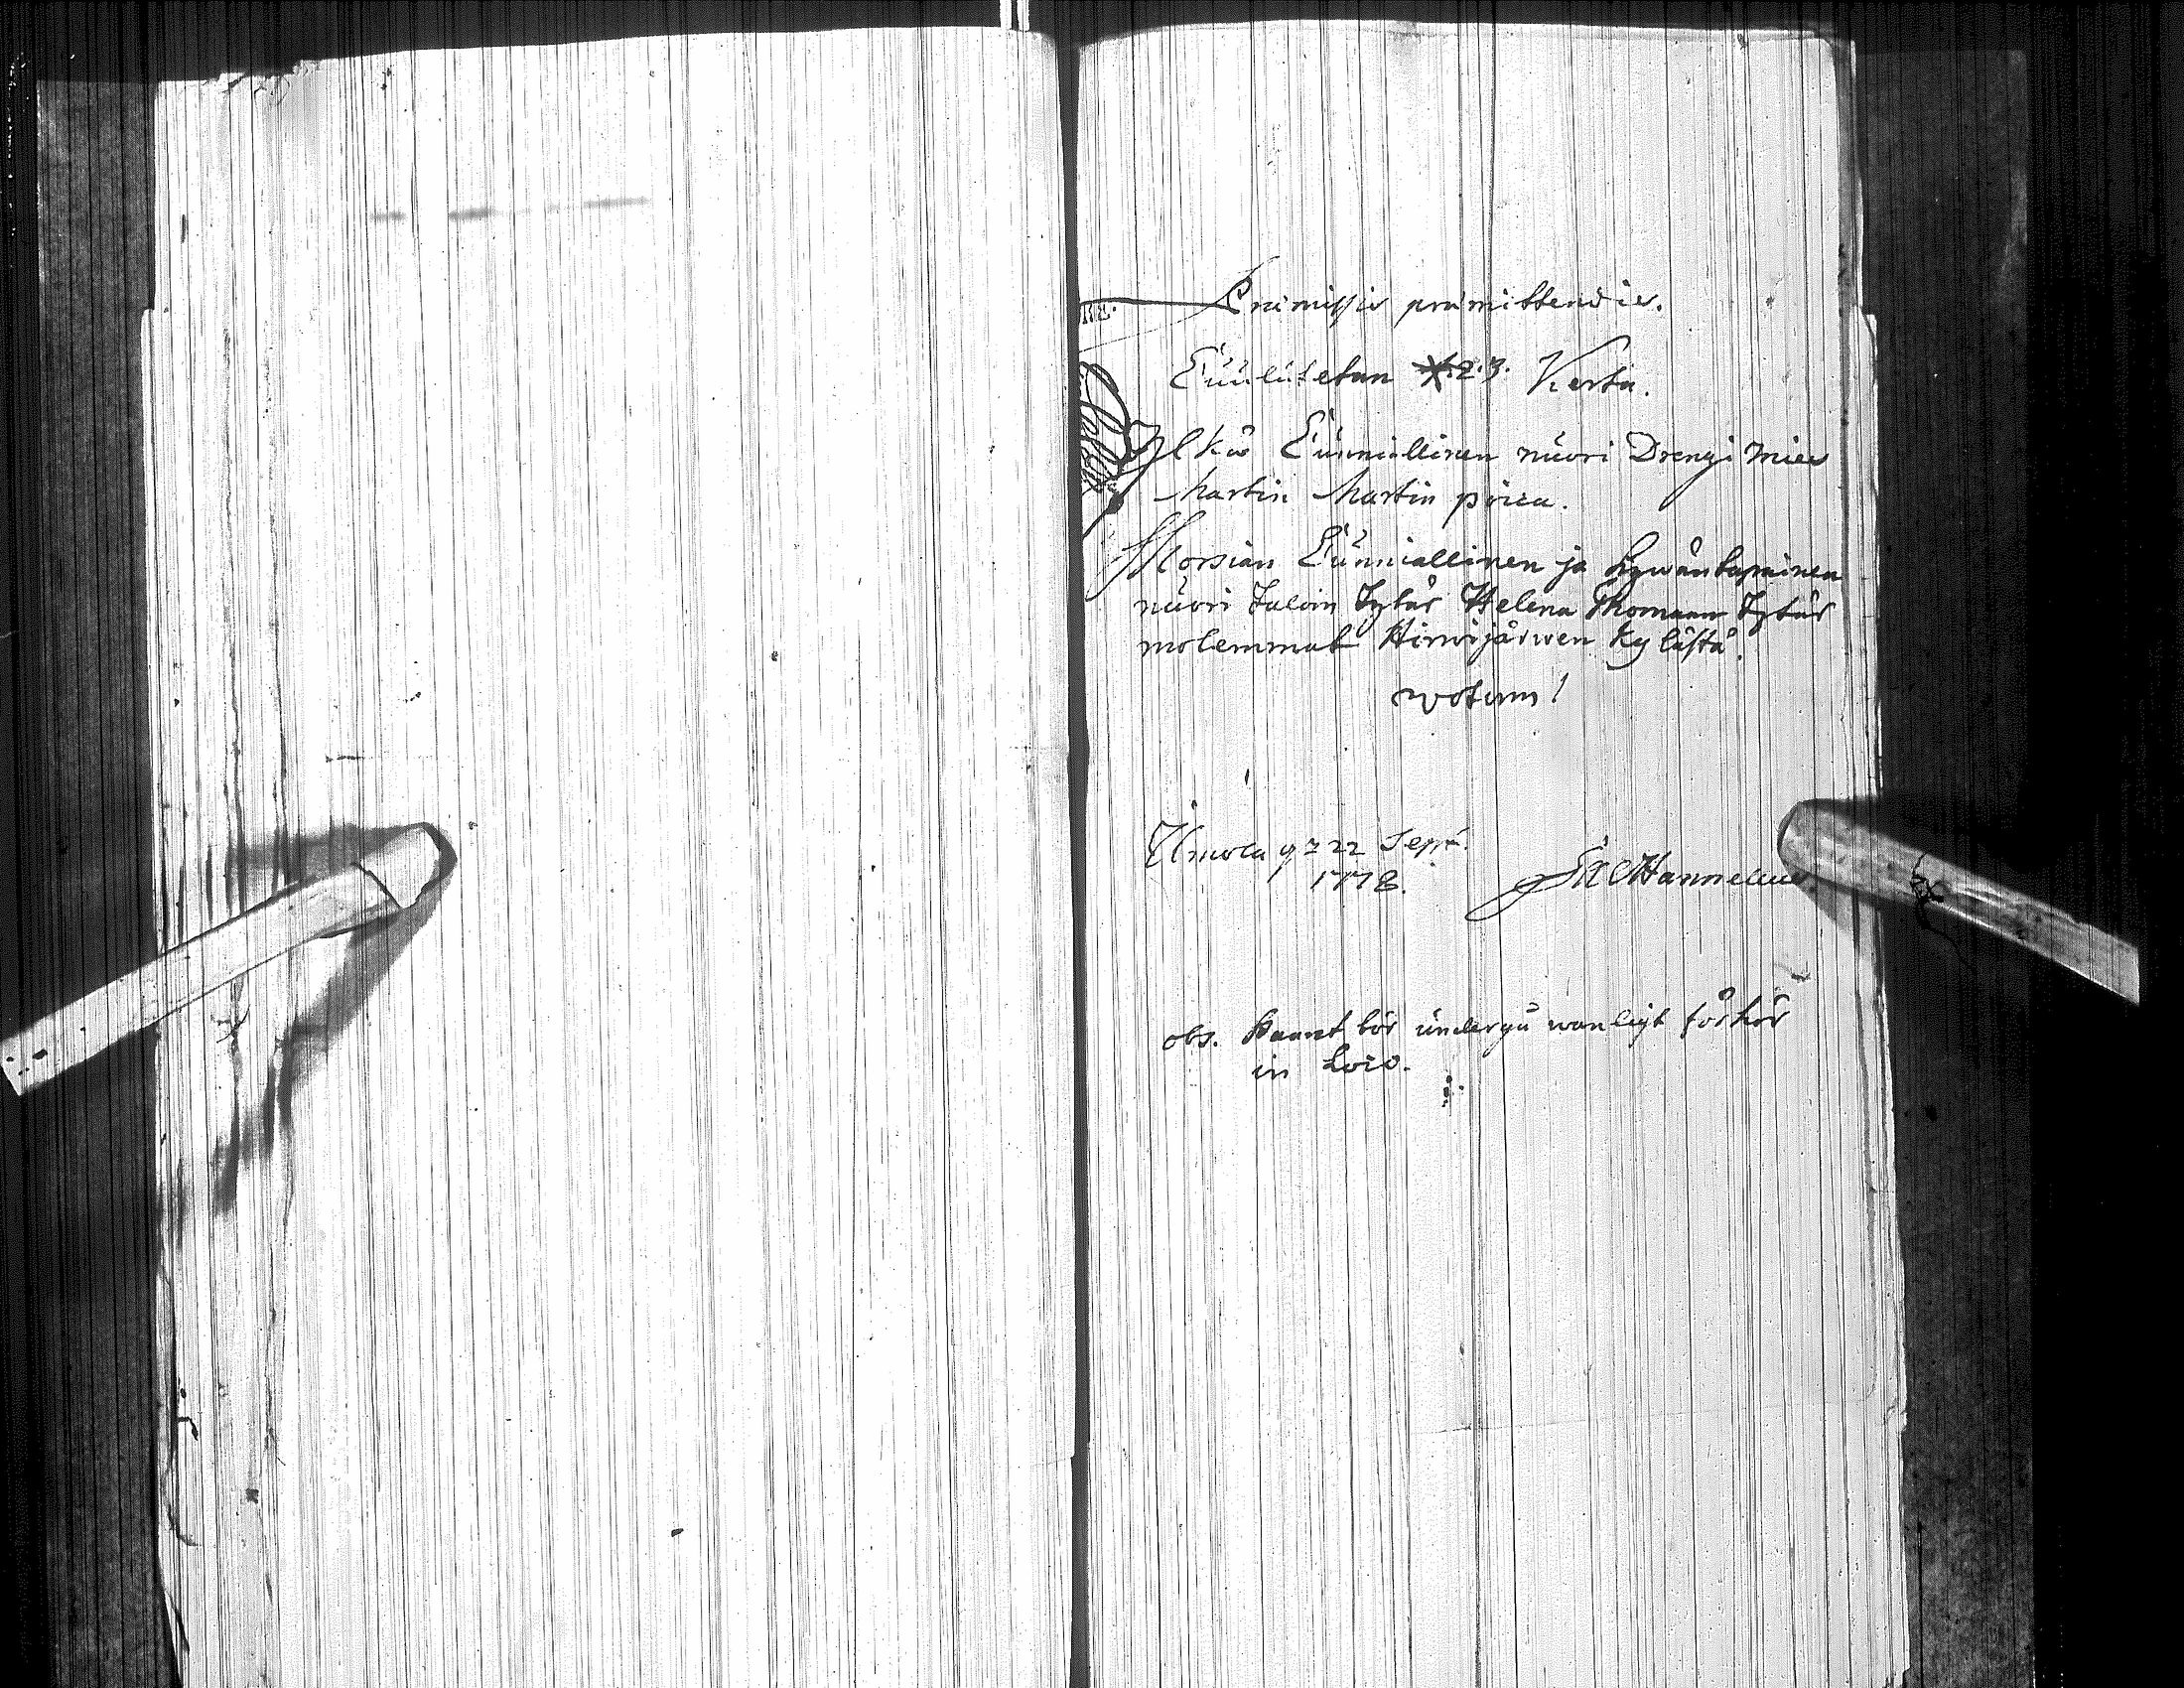 Præmissis præmittendis.
Cuulutetan 1.2.3. Kerta.
Ylkå Cunniallinen nuori Drengi Mies
Martin Martin poica.
Morsian Cunniallinen ja hywäntapainen
nuori Taloin Tytär Helena Thomaan Tytär
molemmat Hirwijärwen Kylästä.
wotum!
Ilmola 22 Sept.
1778.
Hannelius
obs. bör undergå wanligt förhör
in Loco.